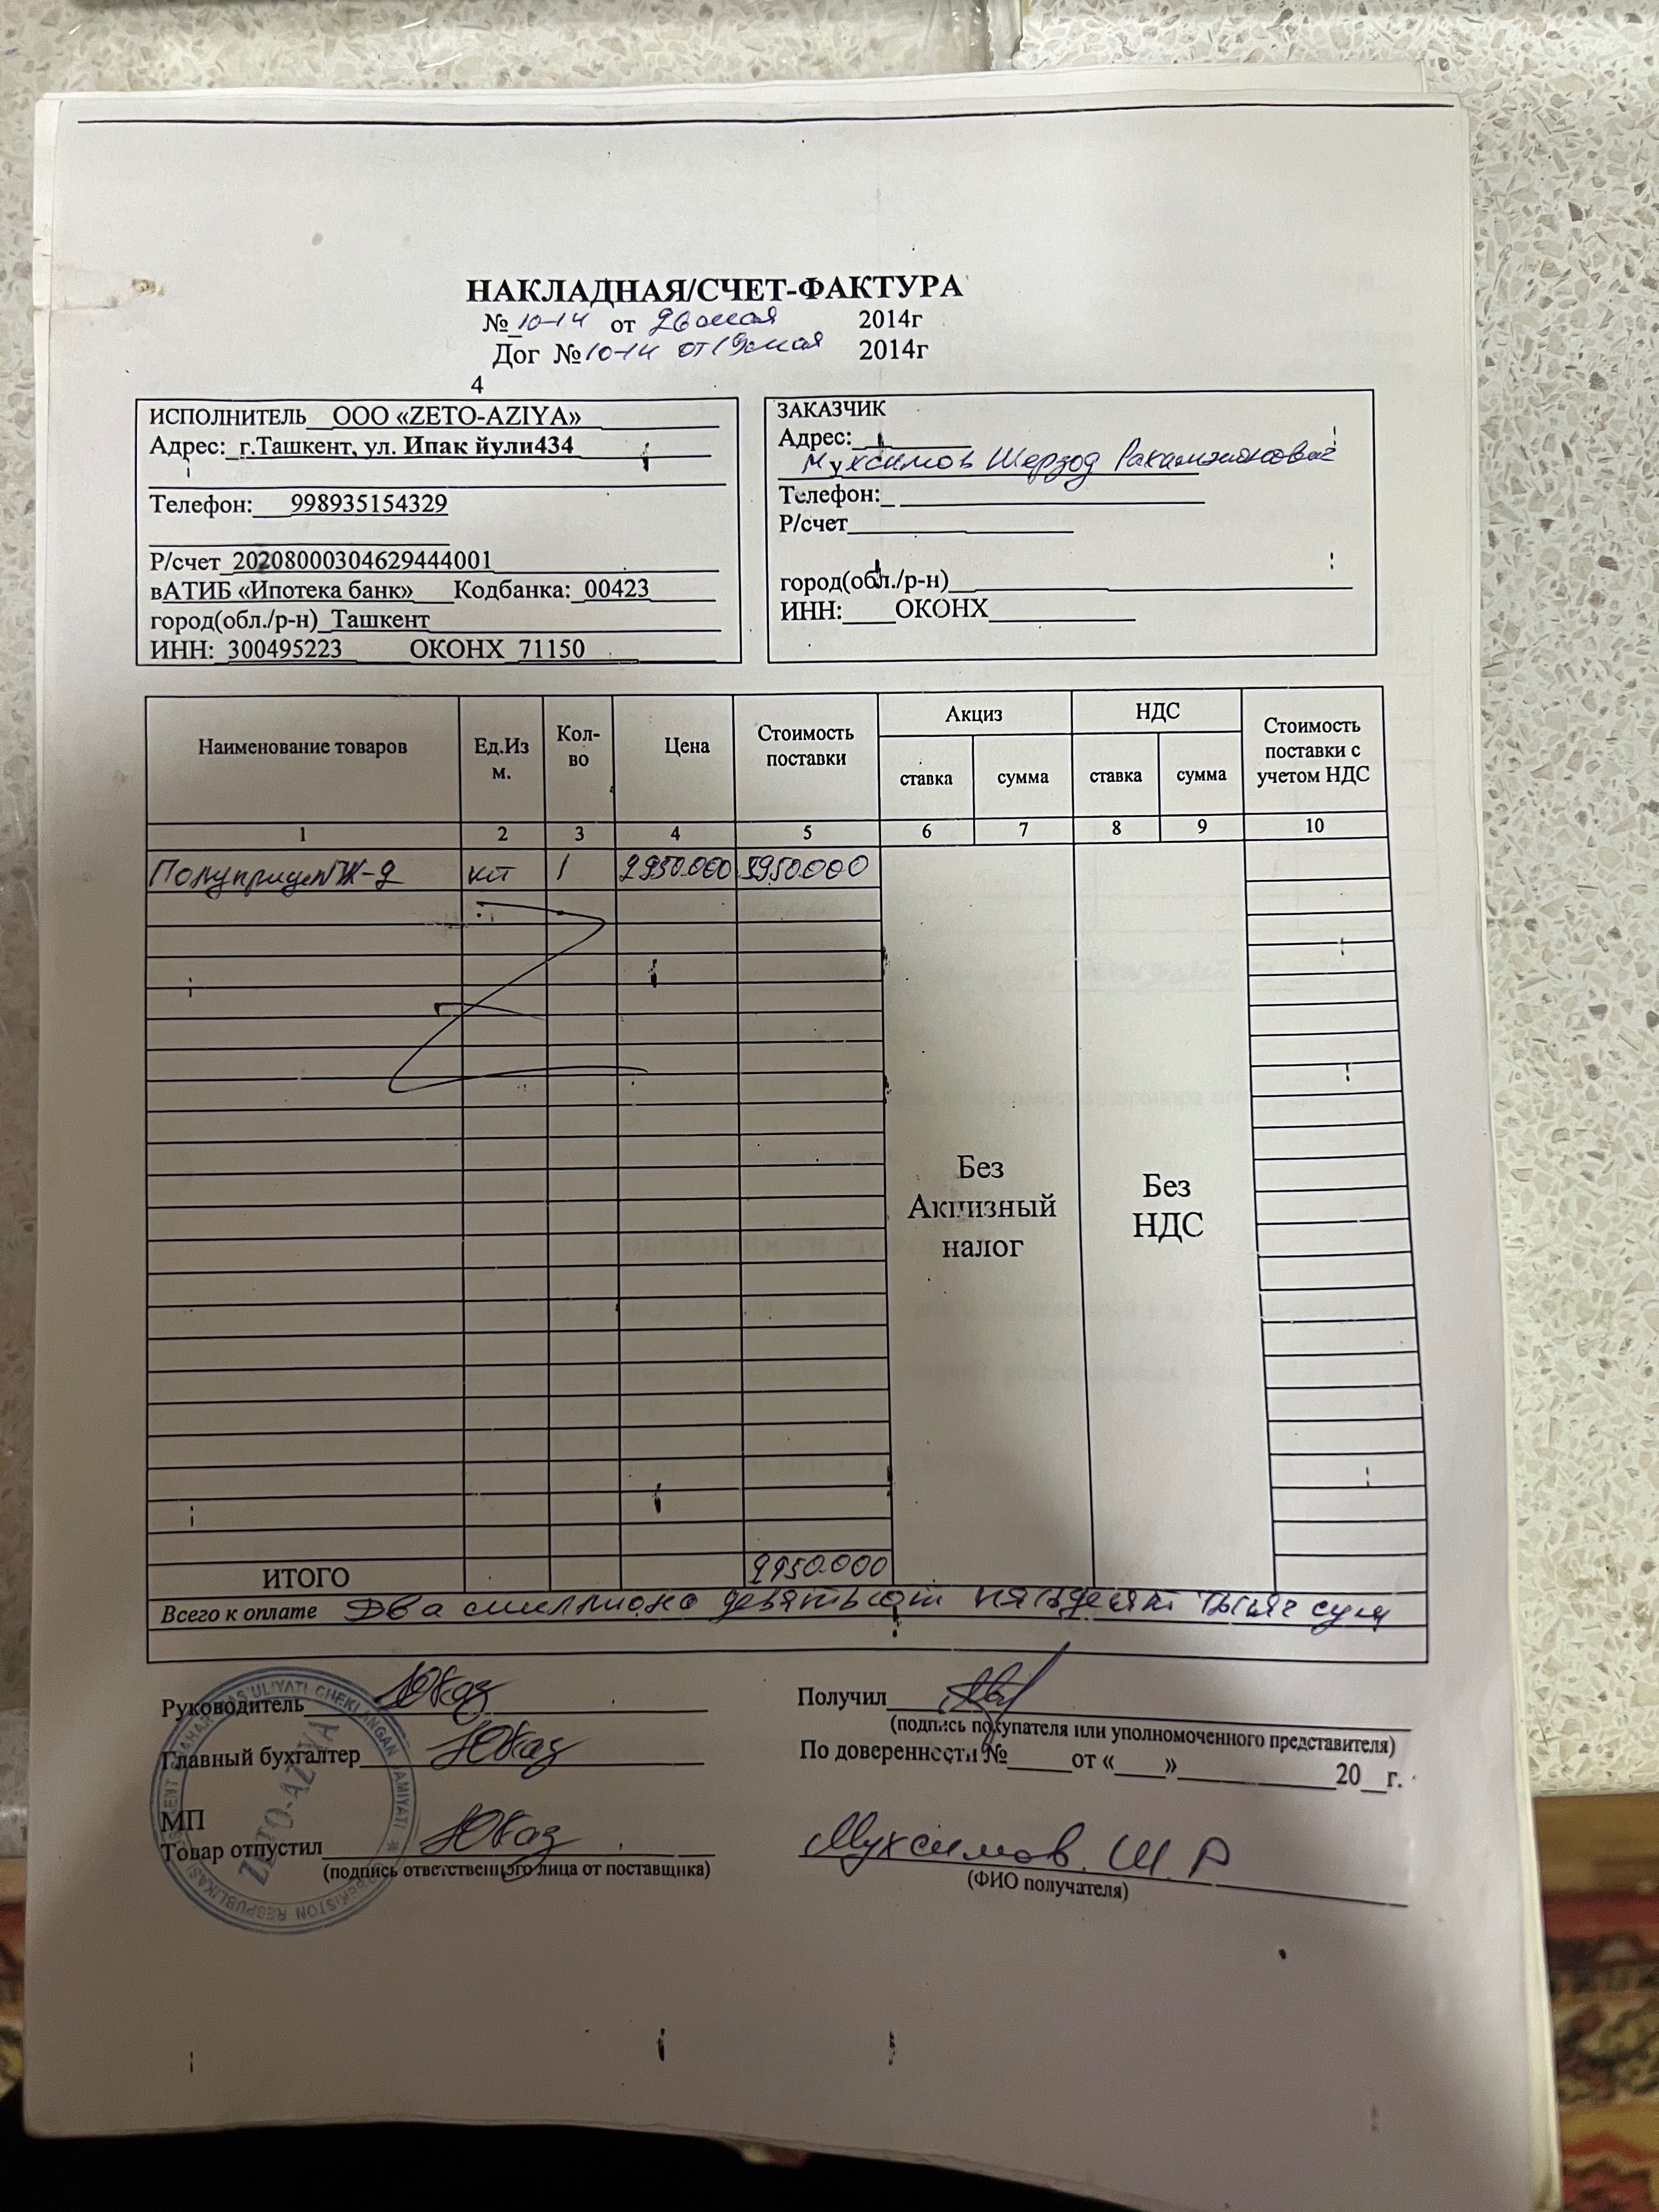 НАКЛАДНАЯ/СЧЕТ-ФАКТУРА
№ 10-14 от 26 мая 2014г
Дог № 10-14 от 19 мая 2014г
4
ИСПОЛНИТЕЛЬ ООО «ZETO-AZIYA»
Адрес: г.Ташкент, ул. Ипак йули434
Телефон: 998935154329
Р/счет 20208000304629444001
вАТИБ «Ипотека банк» Кодбанка: 00423
город(обл./р-н) Ташкент
ИНН: 300495223 ОКОНХ 71150
ЗАКАЗЧИК
Адрес:
Мухсимов Шерзод Рахимжонович
Телефон:
Р/счет
город(обл./р-н)
ИНН: ОКОНХ
Наименование товаров Ед.Из м. Кол-во Цена Стоимость поставки Акциз НДС Стоимость поставки с учетом НДС
ставка сумма ставка сумма
1 2 3 4 5 6 7 8 9 10
кт 1 2950.000 2950.000
Без Акцизный налог
Без НДС
ИТОГО 2950.000
Всего к оплате Два миллиона девятьсот пятьдесят тысяч сум
Руководитель
Главный бухгалтер
МП
Товар отпустил
(подпись ответственного лица от поставщика)
Получил
(подпись покупателя или уполномоченного представителя)
По доверенности № от « » 20 г.
Мухсимов. Ш.Р
(ФИО получателя)
ZETO-AZIYA